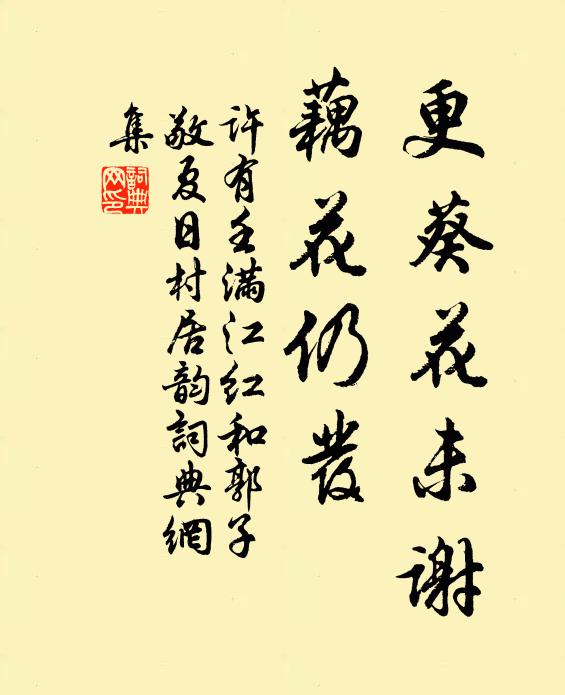 更葵花未谢
藕花仍發
许有壬满江红和郭子
敬夏日村居韵词典網
集
詞典
网印